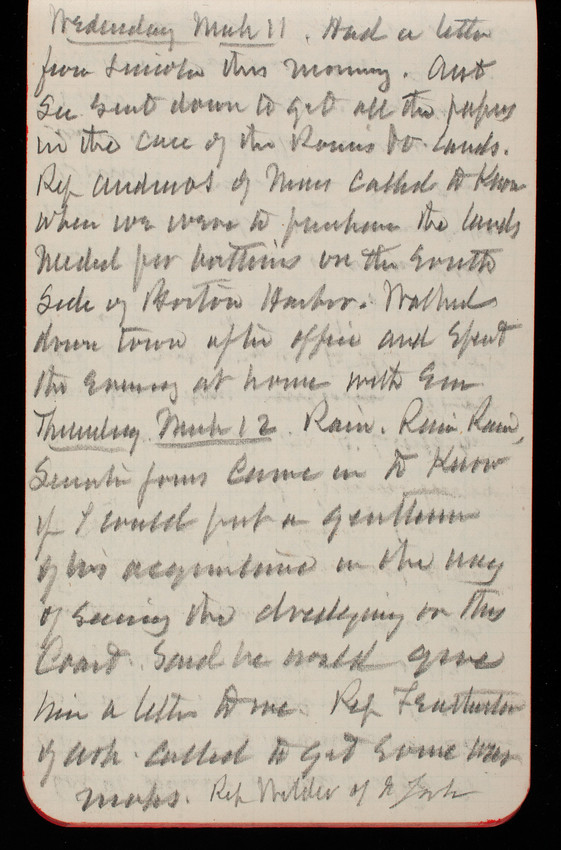 Wednesday March 11. Had a letter
from Lincoln this morning. Ast
Sec sent down to get all the papers
in the case of the lands.
Rep Andrews of Mass called to know
when we were to purchase the lands
needed for batteries on the South
Side of Boston Harbor. Walked
down town after office and spent
the evening at home with Em
Thursday March 12. Rain. Rain Rain,
Senator Jones came in to know
if I could put a gentleman
of his acquaintance in the way
of seeing the dredging on this
Coast. Said he would give
him a letter to me. Rep Featherston
of Ark. called to get some war
maps. Rep of N York